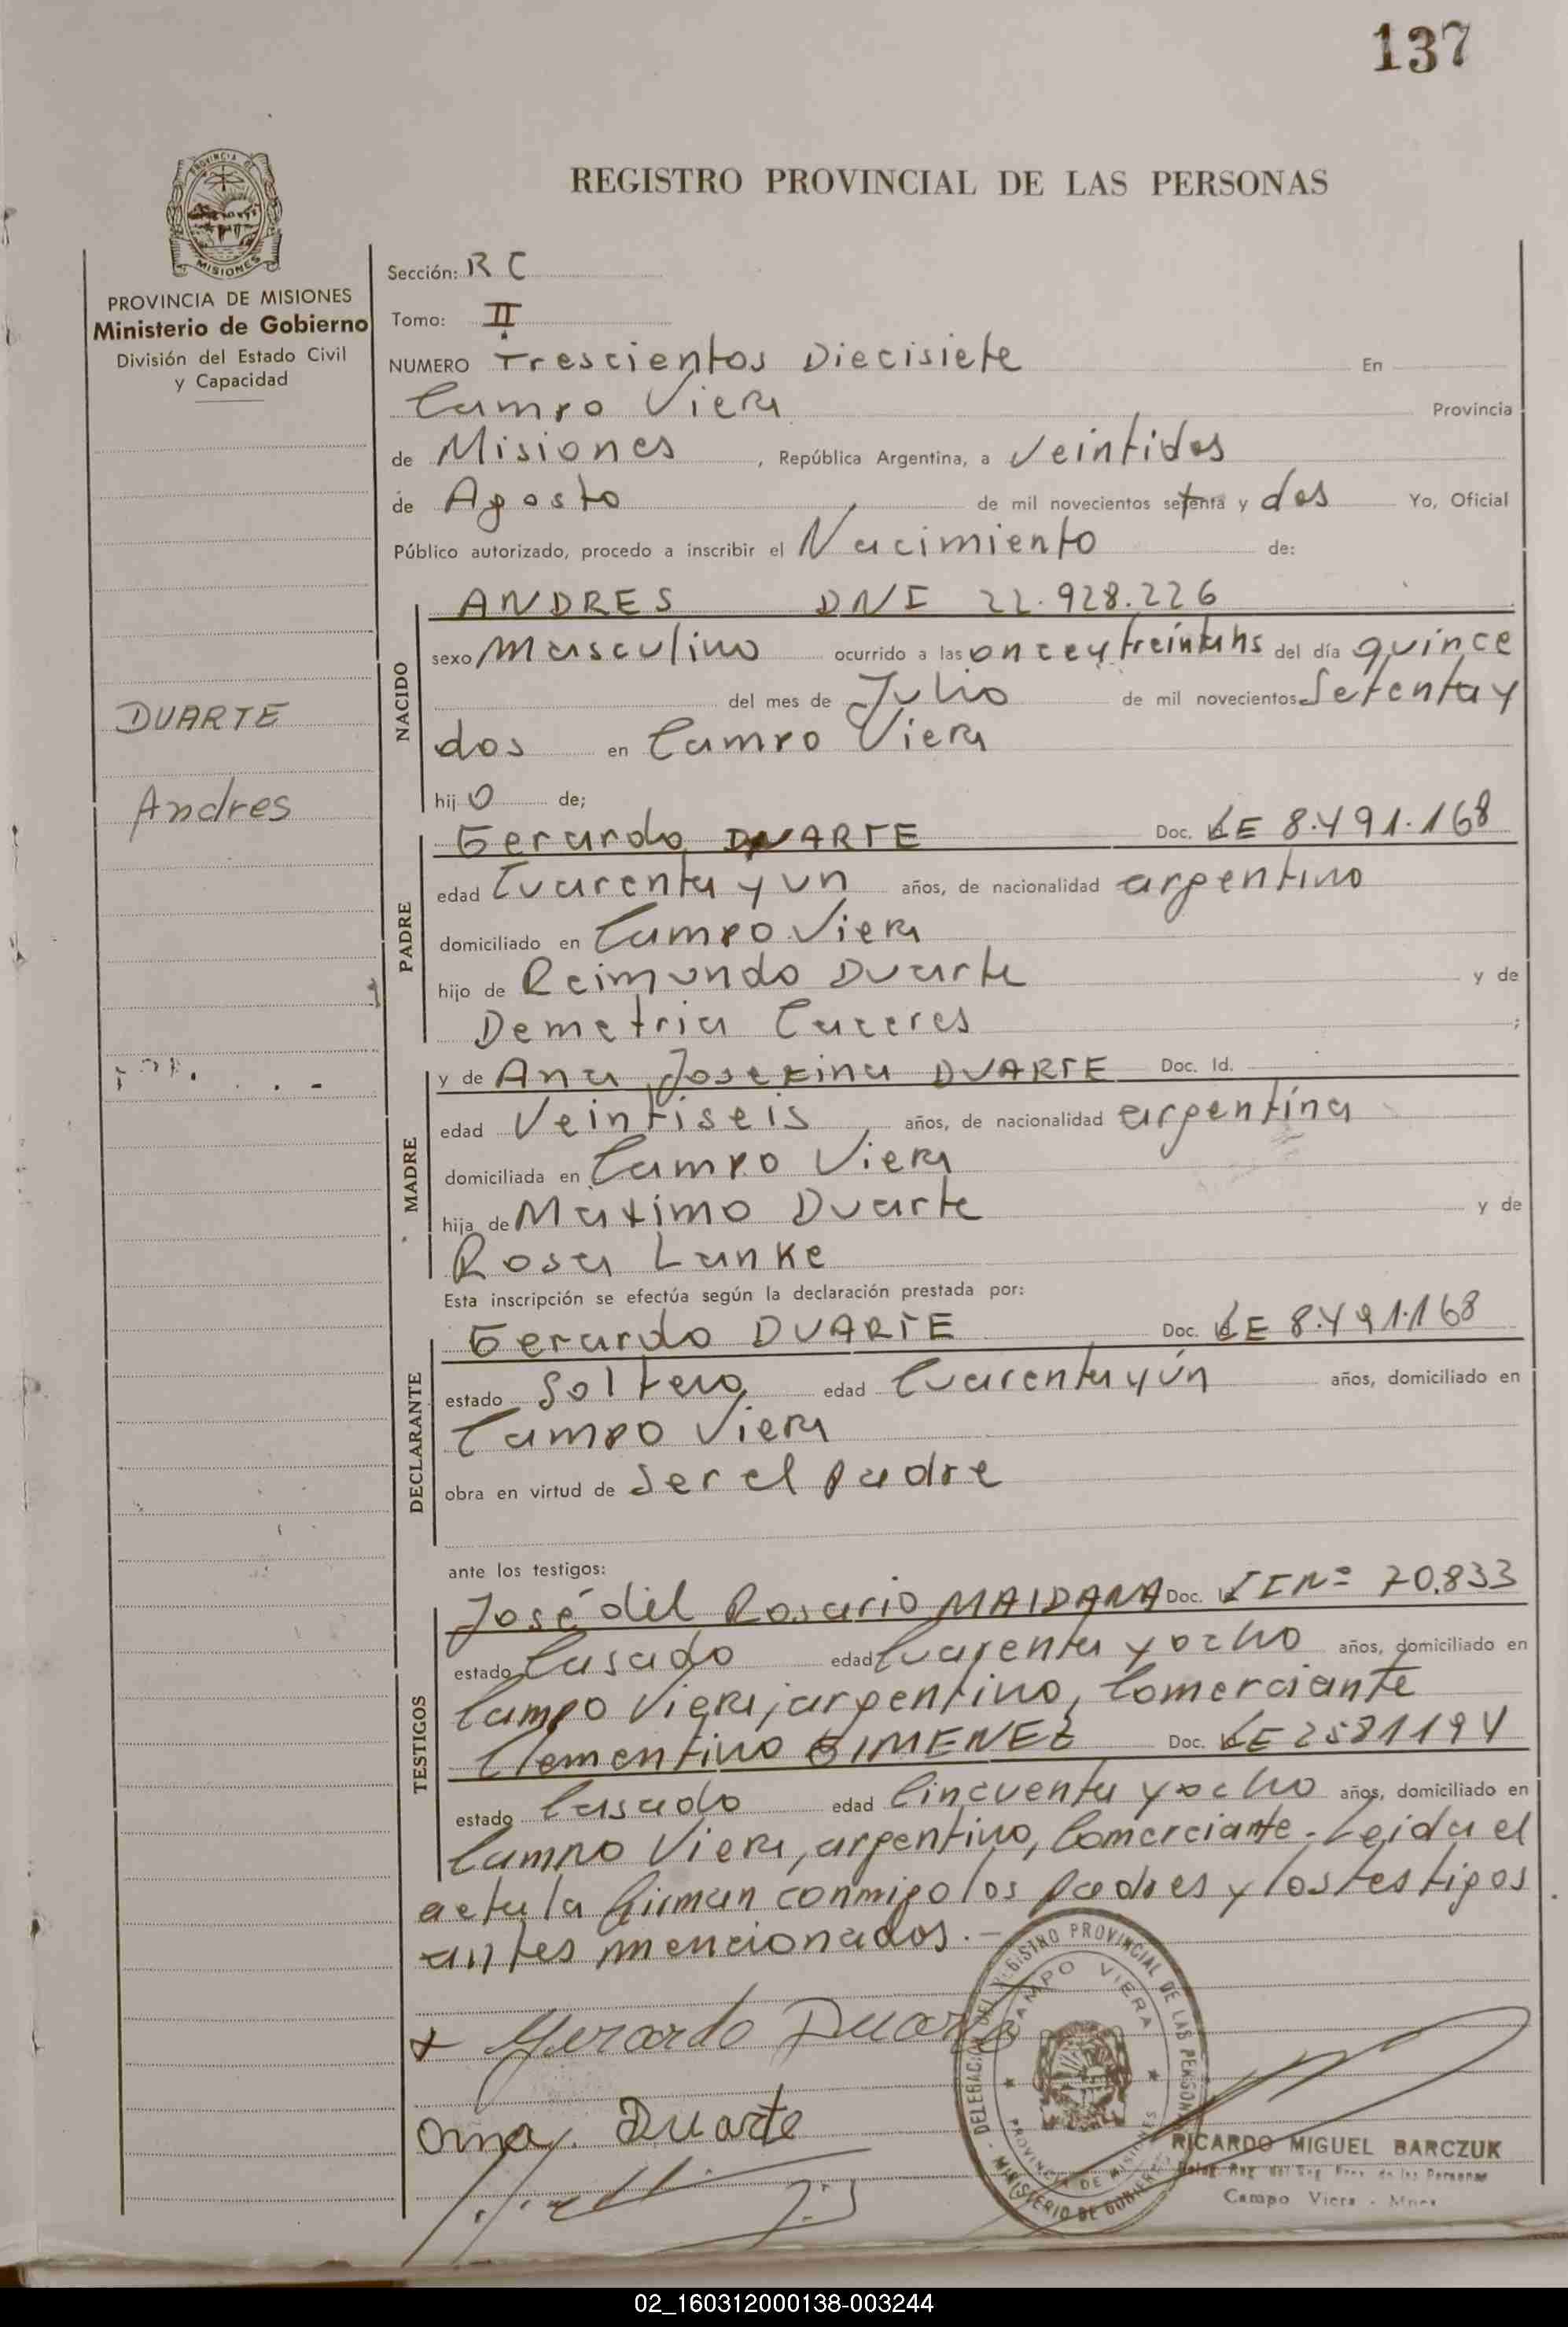 137
REGISTRO PROVINCIAL DE LAS PERSONAS
PROVINCIA DE
MISIONES
PROVINCIA DE MISIONES
Ministerio de Gobierno
División del Estado Civil
y Capacidad
DUARTE
Andres
Sección: R C
Tomo: II
NUMERO Trescientos Diecisiete En
Campo Viera Provincia
de Misiones, República Argentina, a veintidos
de Agosto de mil novecientos setenta y dos Yo, Oficial
Público autorizado, procedo a inscribir el Nacimiento de:
NACIDO
ANDRES DNI 22.928.226
sexo Masculino ocurrido a las once y treinta hs del día quince
del mes de Julio de mil novecientos Setenta y
dos en Campo Viera
hijo de;
PADRE
Gerardo DUARTE Doc. LE 8.491.168
edad Cuarenta y un años, de nacionalidad argentino
domiciliado en Campo Viera
hijo de Reimundo Duarte y de
Demetria Caceres ;
MADRE
y de Ana Josefina DUARTE Doc. Id.
edad Veintiseis, años, de nacionalidad argentina
domiciliada en Campo Viera
hija de Maximo Duarte y de
Rosa Lunke
Esta inscripción se efectúa según la declaración prestada por:
DECLARANTE
Gerardo DUARTE Doc. LE 8.491.168
estado Soltero edad Cuarenta y ún años, domiciliado en
Campo Viera
obra en virtud de Ser el padre
ante los testigos:
TESTIGOS
José del Rosario MAIDANA Doc. CI Nº 70.833
estado Casado edad Cuarenta y ocho años, domiciliado en
Campo Viera, argentino, Comerciante
Clementino GIMENEZ Doc. LE 2581194
estado Casado edad Cincuenta y ocho años, domiciliado en
Campo Viera, argentino, Comerciante. Leida el
acta la firman conmigo los padres y los testigos
antes mencionados.-
x Gerardo Duarte
Ana. Duarte
DELEGACION DEL REGISTRO PROVINCIAL DE LAS PERSONAS
CAMPO VIERA
PROVINCIA DE MISIONES
MINISTERIO DE GOBIERNO
RICARDO MIGUEL BARCZUK
Deleg. Reg. del Reg. Prov. de las Personas
Campo Viera - Mnes
02_160312000138-003244